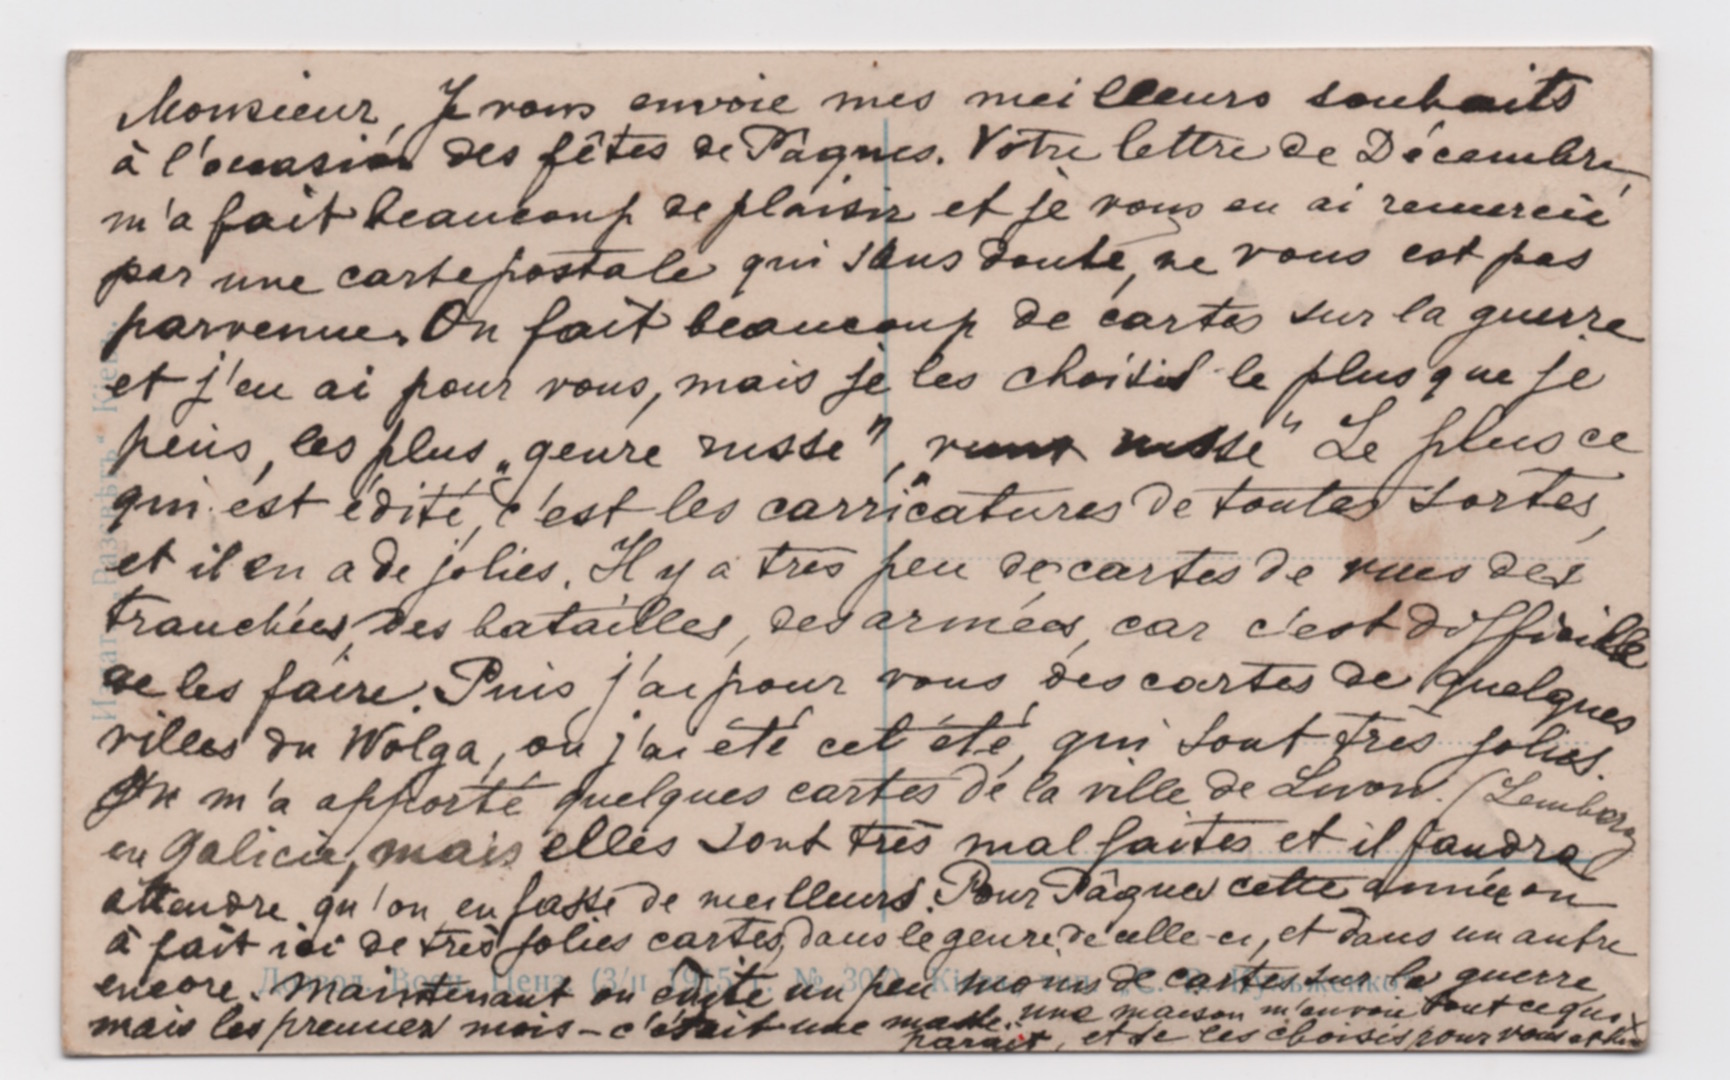 Monsieur, Je vous envoie mes meilleurs souhaits
à l'occasion des fêtes de Pâques. Votre lettre de Décembre,
m'a fait beaucoup de plaisir et je vous en ai remercié
par une carte postale qui sans doute, ne vous est pas
parvenue. On fait beaucoup de cartes sur la guerre
et j'en ai pour vous, mais je les choisis le plus que je
peus, les plus „genre russe", russe" Le plus ce
qui est édité, c'est les carricatures de toutes sortes,
et il en a de jolies. Il y a très peu de cartes de vues des
tranchées, des batailles, des armées, car c'est difficille
de les faire. Puis j'ai pour vous des cartes de quelques
villes du Wolga, où j'ai été cet été, qui sont très jolies.
On m'a apporté quelques cartes de la ville de Lwow. (Lemberg
en Galicie, mais elles sont très mal faites et il faudra
attendre qu'on en fasse de meilleurs. Pour Pâques cette année on
à fait ici de très jolies cartes, dans le genre de celle-ci, et dans un autre
encore. Maintenant on édite un peu moins de cartes sur la guerre,
mais les premier mois – c'était une masse. une maison m'envoie tout ce qui
parait, et je les choisis pour vous et
Кіевъ.